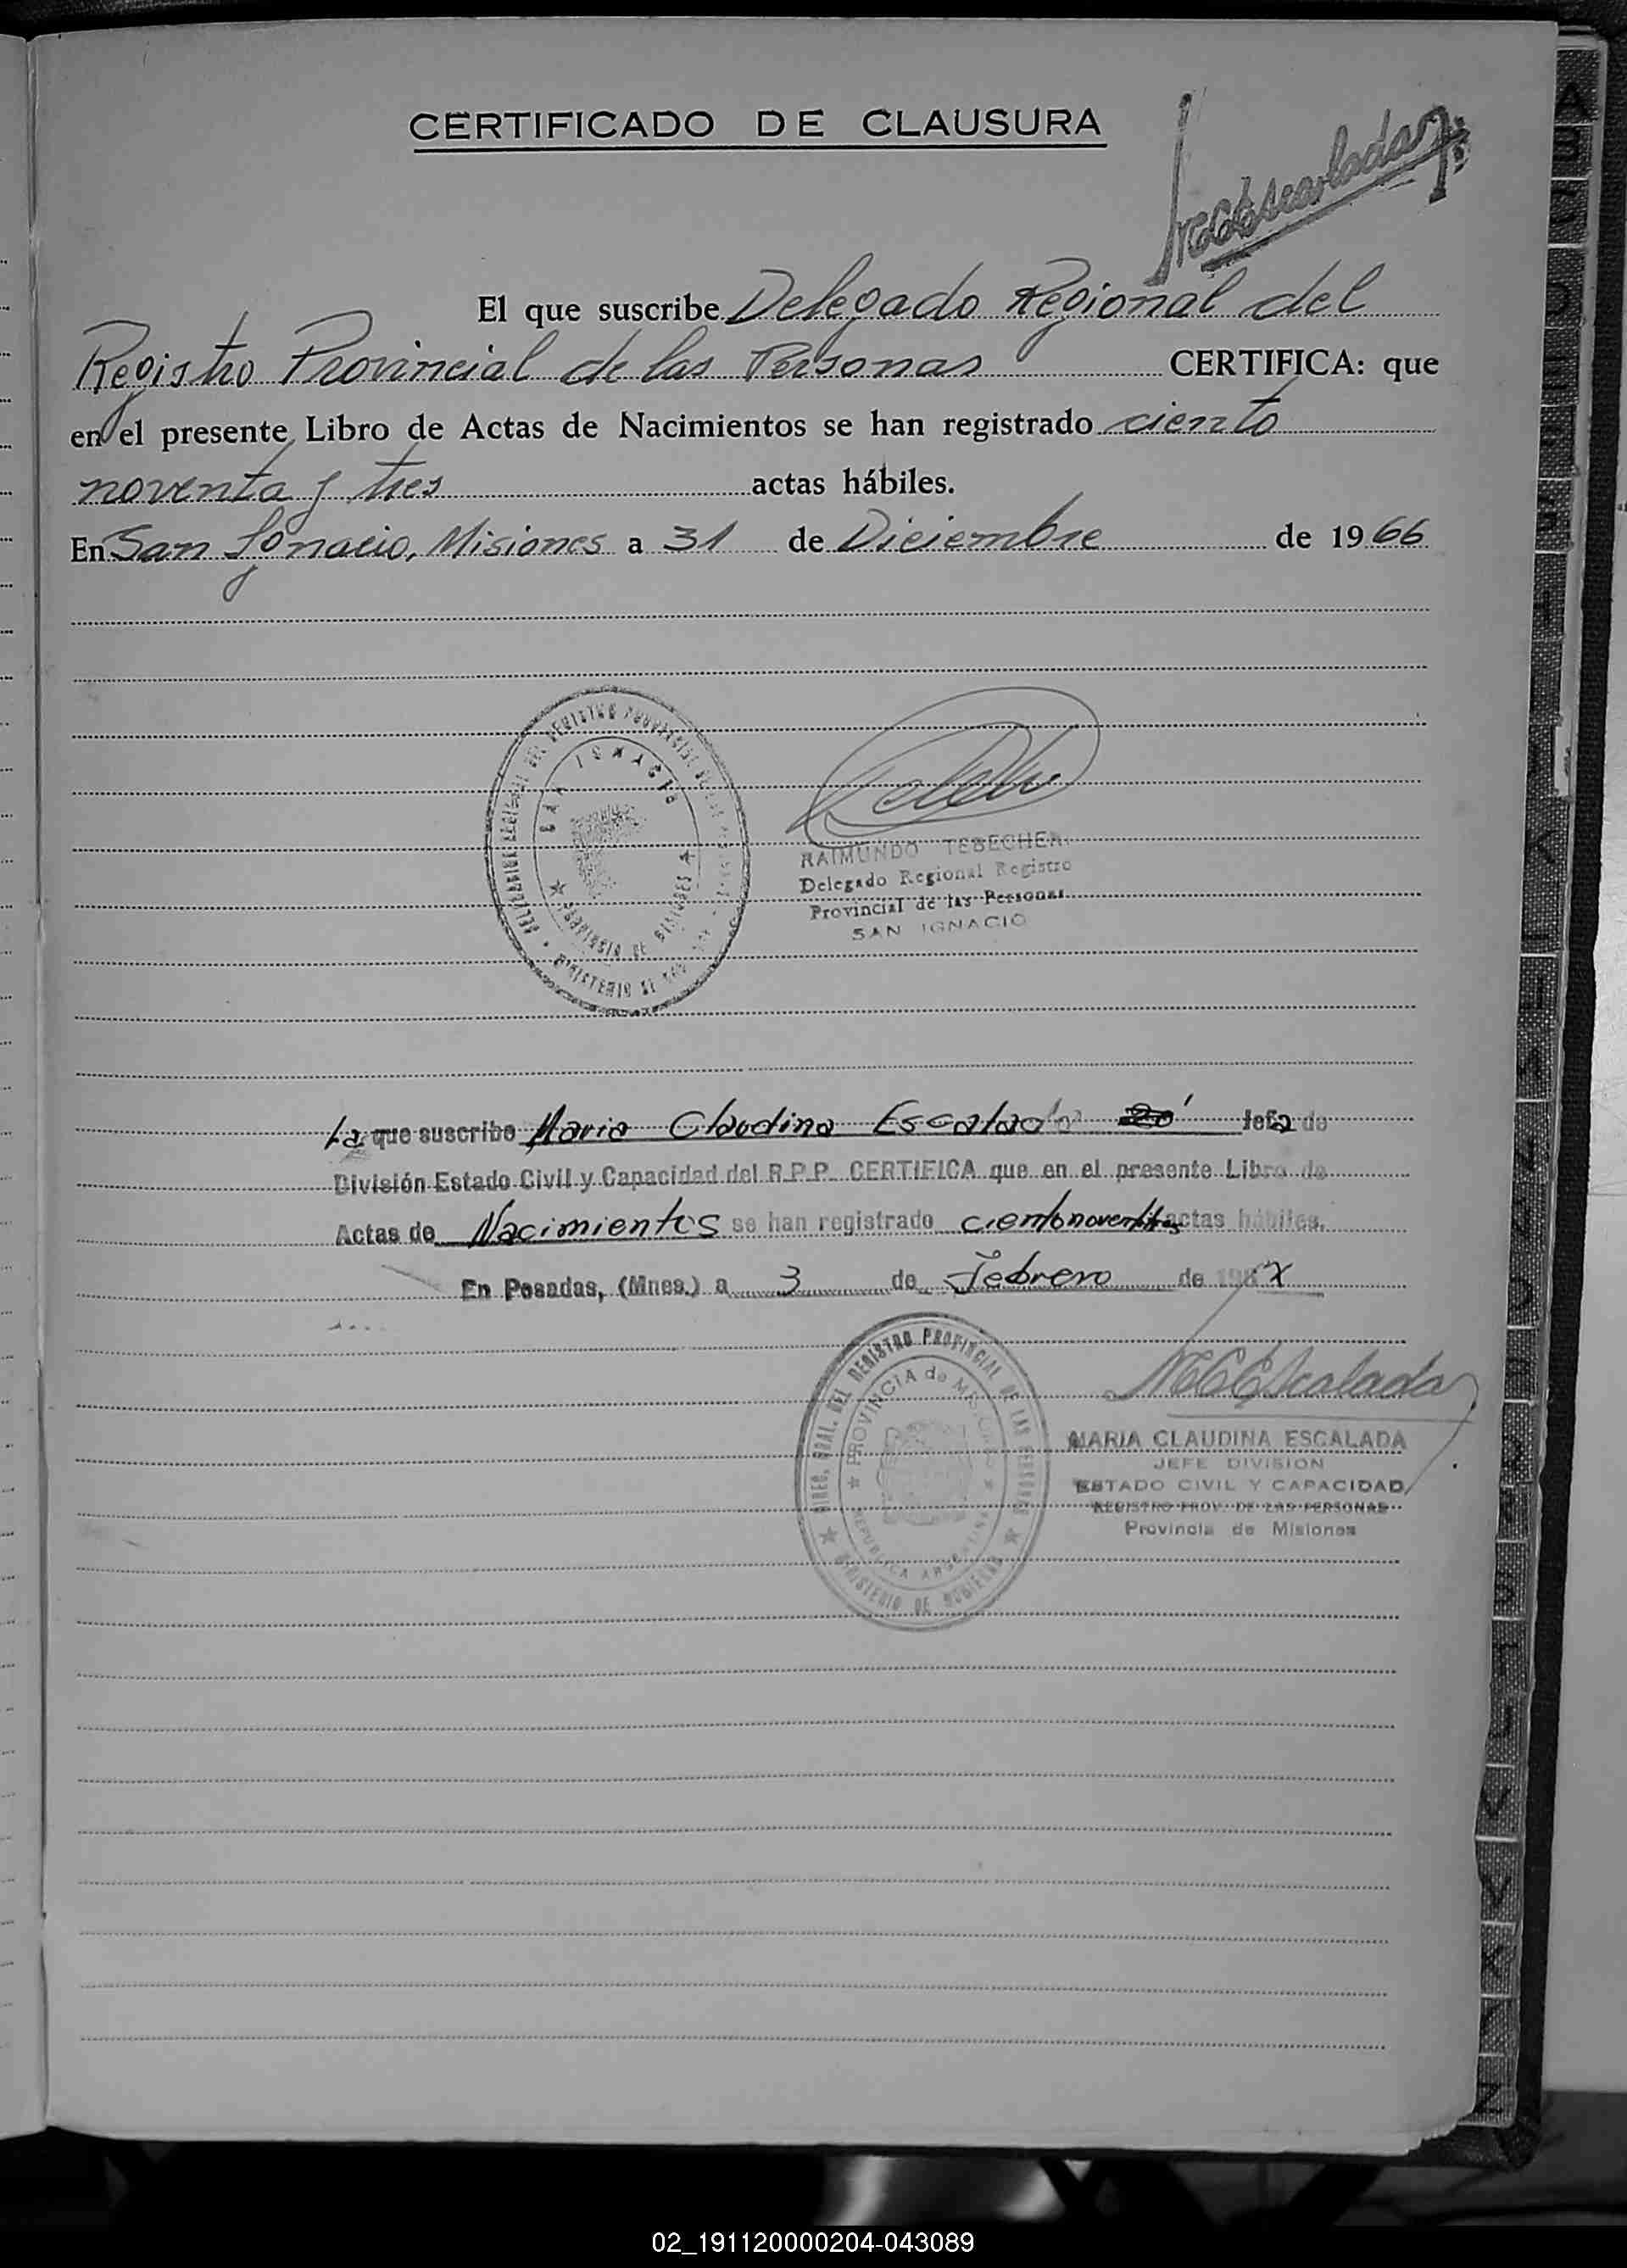 CERTIFICADO DE CLAUSURA
El que suscribe Delegado Regional del
Registro Provincial de las Personas CERTIFICA: que
en el presente Libro de Actas de Nacimientos se han registrado ciento
noventa y tres actas hábiles.
En San Ignacio, Misiones a 31 de Diciembre de 1966
SAN IGNACIO
PROVINCIA DE MISIONES
RAIMUNDO TEBECHER
Delegado Regional Registro
Provincial de las Personas
SAN IGNACIO
La que suscribe Maria Claudina Escalada Jefa de
División Estado Civil y Capacidad del R.P.P. CERTIFICA que en el presente Libro de
Actas de Nacimientos se han registrado ciento noventitres actas hábiles.
En Posadas, (Mnes.) a 3 de Febrero de
DIREC. GRAL. DEL REGISTRO PROVINCIAL DE LAS PERSONAS
PROVINCIA de MISIONES
REPUBLICA ARGENTINA
MINISTERIO DE GOBIERNO
MCEscalada
MARIA CLAUDINA ESCALADA
JEFE DIVISION
ESTADO CIVIL Y CAPACIDAD
REGISTRO PROV. DE LAS PERSONAS
Provincia de Misiones
02_191120000204-043089